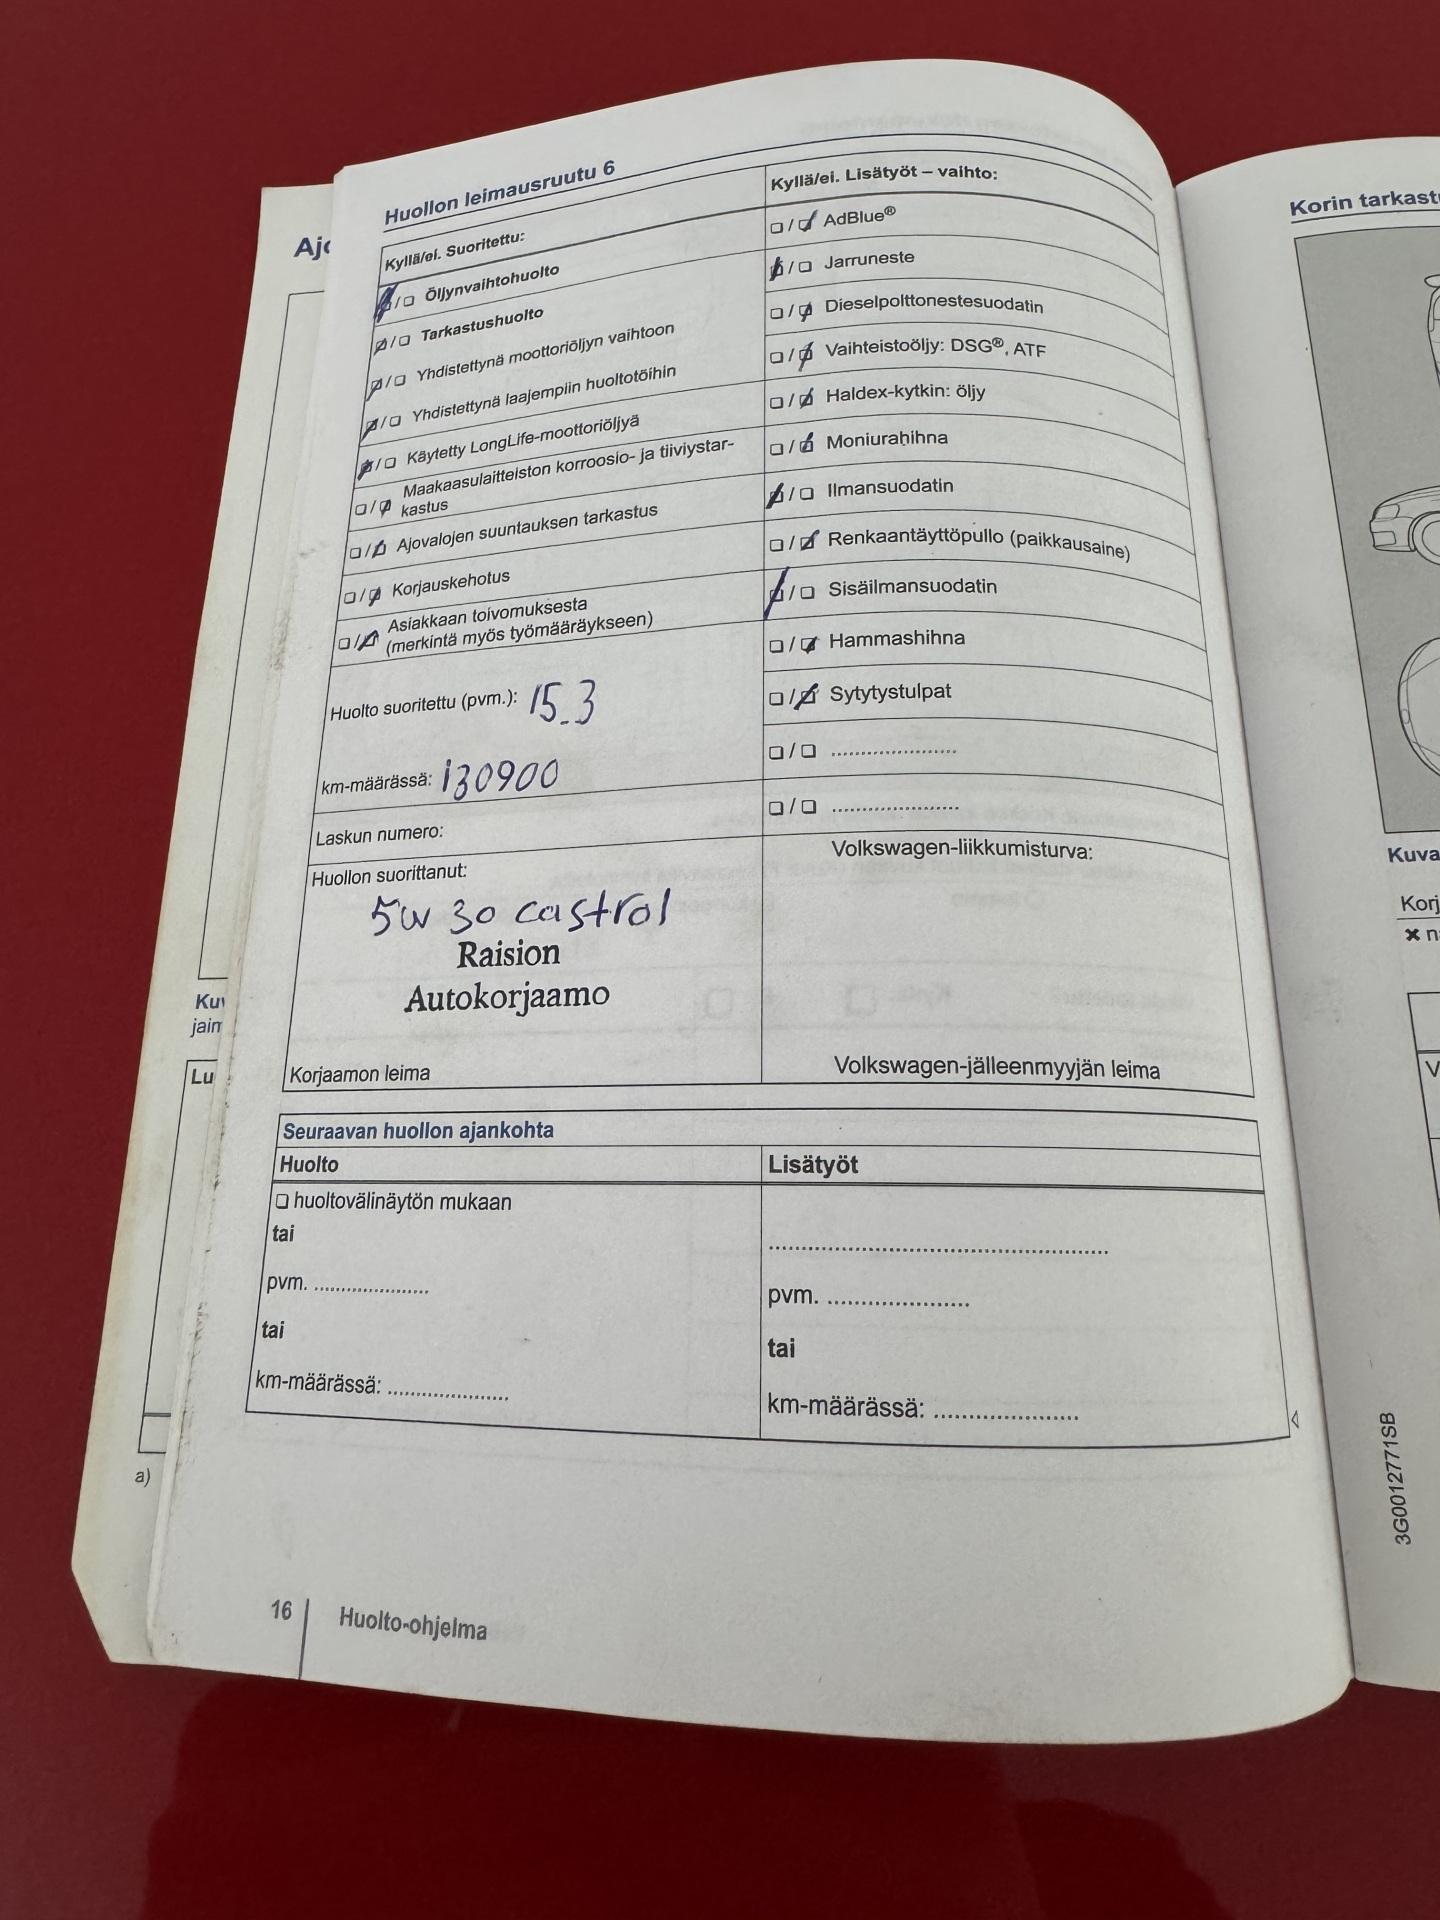 Huollon leimausruutu 6
Kyllä/ei. Suoritettu:
❏/❏ Öljynvaihtohuolto
❏/❏ Tarkastushuolto
❏/❏ Yhdistettynä moottoriöljyn vaihtoon
❏/❏ Yhdistettynä laajempiin huoltotöihin
❏/❏ Käytetty LongLife-moottoriöljyä
❏/❏ Maakaasulaitteiston korroosio- ja tiiviystar-
kastus
❏/❏ Ajovalojen suuntauksen tarkastus
❏/❏ Korjauskehotus
❏/❏ Asiakkaan toivomuksesta
(merkintä myös työmääräykseen)
Huolto suoritettu (pvm.): 15.3
km-määrässä: 130900
Laskun numero:
Huollon suorittanut:
5w 30 castrol
Raision
Autokorjaamo
Korjaamon leima
Kyllä/ei. Lisätyöt – vaihto:
❏/❏ AdBlue®
❏/❏ Jarruneste
❏/❏ Dieselpolttonestesuodatin
❏/❏ Vaihteistoöljy: DSG®, ATF
❏/❏ Haldex-kytkin: öljy
❏/❏ Moniurahihna
❏/❏ Ilmansuodatin
❏/❏ Renkaantäyttöpullo (paikkausaine)
❏/❏ Sisäilmansuodatin
❏/❏ Hammashihna
❏/❏ Sytytystulpat
❏/❏ .....................
❏/❏ .....................
Volkswagen-liikkumisturva:
Volkswagen-jälleenmyyjän leima
Seuraavan huollon ajankohta
Huolto
❏ huoltovälinäytön mukaan
tai
pvm. .....................
tai
km-määrässä: .....................
Lisätyöt
..........................................................
pvm. .....................
tai
km-määrässä: .....................
16 Huolto-ohjelma
a)
Korin
Kuva
3G0012771SB